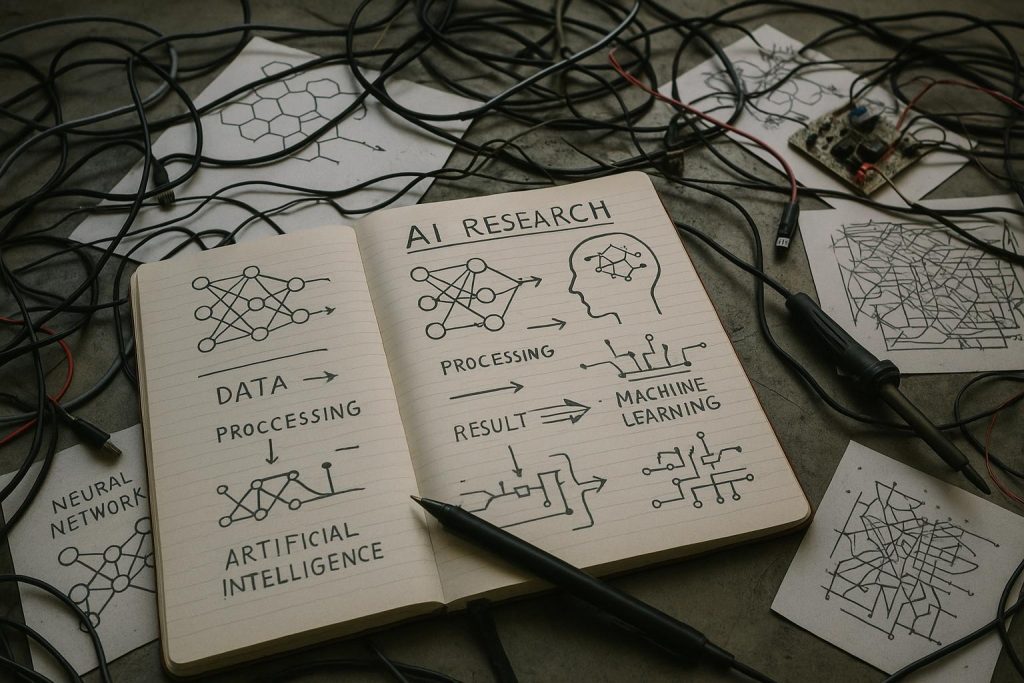 AI RESEARCH
DATA
PROCCESSING
ARTIFICIAL
INTELLIGENCE
PROCESSING
RESULT
MACHINE
LEARNING
NEURAL
NETWORK